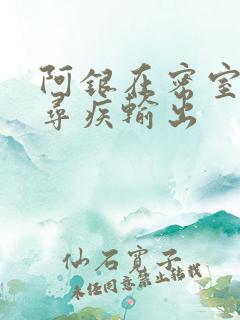 阿银在密室
寻疾输出
仙石寛子
未经同意禁止转载